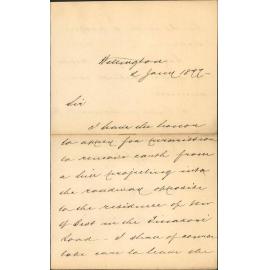 Wellington
2 Jany 1877
Sir
I have the honor
to apply for permission
to remove earth from
a hill projecting into
the roadway opposite
to the residence of
in the Tinakori
Road - I shall of course
take care to leave the